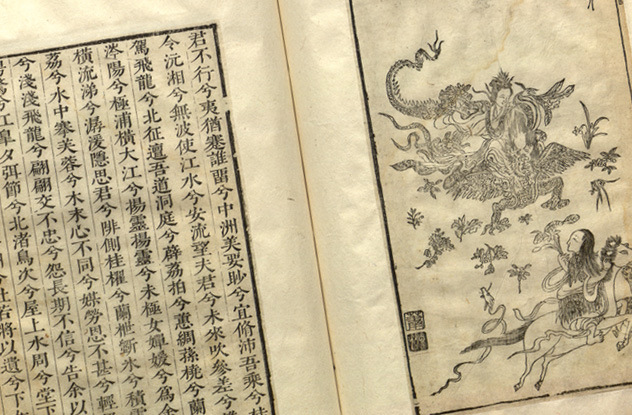 君不行兮夷猶蹇誰畱兮中洲美要眇兮宜脩沛吾乘兮桂
令沅湘兮無波使江水兮安流望夫君兮未來吹參差兮
駕飛龍兮北征邅吾道兮洞庭薜荔拍兮蕙綢蓀橈兮蘭
涔陽兮極浦橫大江兮揚靈揚靈兮未極女嬋媛兮為余
橫流涕兮潺湲隱思君兮陫側桂櫂兮蘭枻斲冰兮積
荔兮水中搴芙蓉兮木末心不同兮媒勞恩不甚兮輕
兮淺淺飛龍兮翩翩交不忠兮怨長期不信兮告余以
兮江皋夕弭節兮北渚鳥次兮屋上水周兮堂下
杜若將以遺兮下